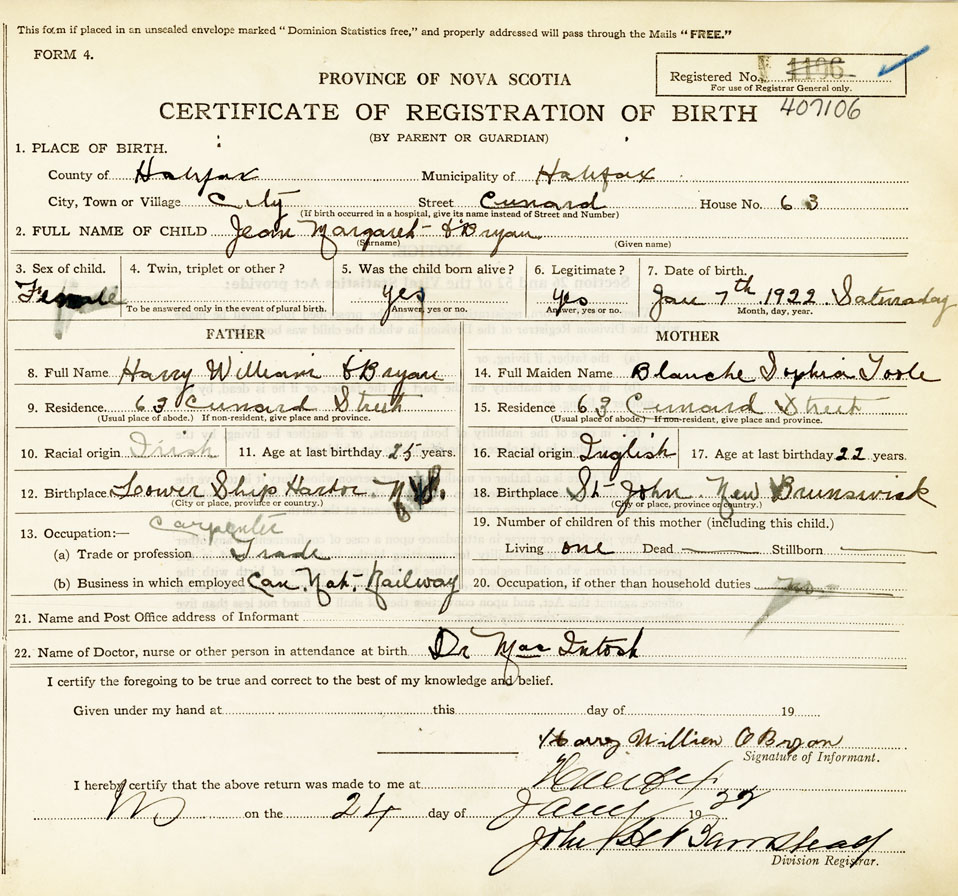 This form if placed in an unsealed envelope marked "Dominion Statistics free," and properly addressed will pass through the Mails "FREE."
FORM 4.
PROVINCE OF NOVA SCOTIA
Registered No. 1196
For use of Registrar General only.
CERTIFICATE OF REGISTRATION OF BIRTH 407106
(BY PARENT OR GUARDIAN)
1. PLACE OF BIRTH.
County of Halifax Municipality of Halifax
City, Town or Village City Street Cunard House No. 63
(If birth occurred in a hospital, give its name instead of Street and Number)
2. FULL NAME OF CHILD Jean Margaret O'Bryan
(Surname) (Given name)
3. Sex of child. 4. Twin, triplet or other? 5. Was the child born alive? 6. Legitimate? 7. Date of birth.
Female yes yes Jan 7th 1922 Saturaday
To be answered only in the event of plural birth. Answer, yes or no. Answer, yes or no. Month, day, year.
FATHER MOTHER
8. Full Name Harry William O'Bryan 14. Full Maiden Name Blanche Sophia Toole
9. Residence. 63 Cunard Street 15. Residence 63 Cunard Street
(Usual place of abode.) If non-resident, give place and province. (Usual place of abode.) If non-resident, give place and province.
10. Racial origin Irish 11. Age at last birthday 25 years. 16. Racial origin Inglish 17. Age at last birthday 22 years.
12. Birthplace Lower Ship Harbor. N.S. 18. Birthplace St John. New Brunswick
(City or place, province or country.) (City or place, province or country.)
13. Occupation:— Carpenter 19. Number of children of this mother (including this child.)
(a) Trade or profession Trade Living one Dead Stillborn
(b) Business in which employed Can. Nat. Railway 20. Occupation, if other than household duties No
21. Name and Post Office address of Informant
22. Name of Doctor, nurse or other person in attendance at birth Dr Mac Intosh
I certify the foregoing to be true and correct to the best of my knowledge and belief.
Given under my hand at this day of 19
Harry William O Bryan
Signature of Informant.
I hereby certify that the above return was made to me at Halifax
on the 24 day of Jany 1922
John Barnstead
Division Registrar.